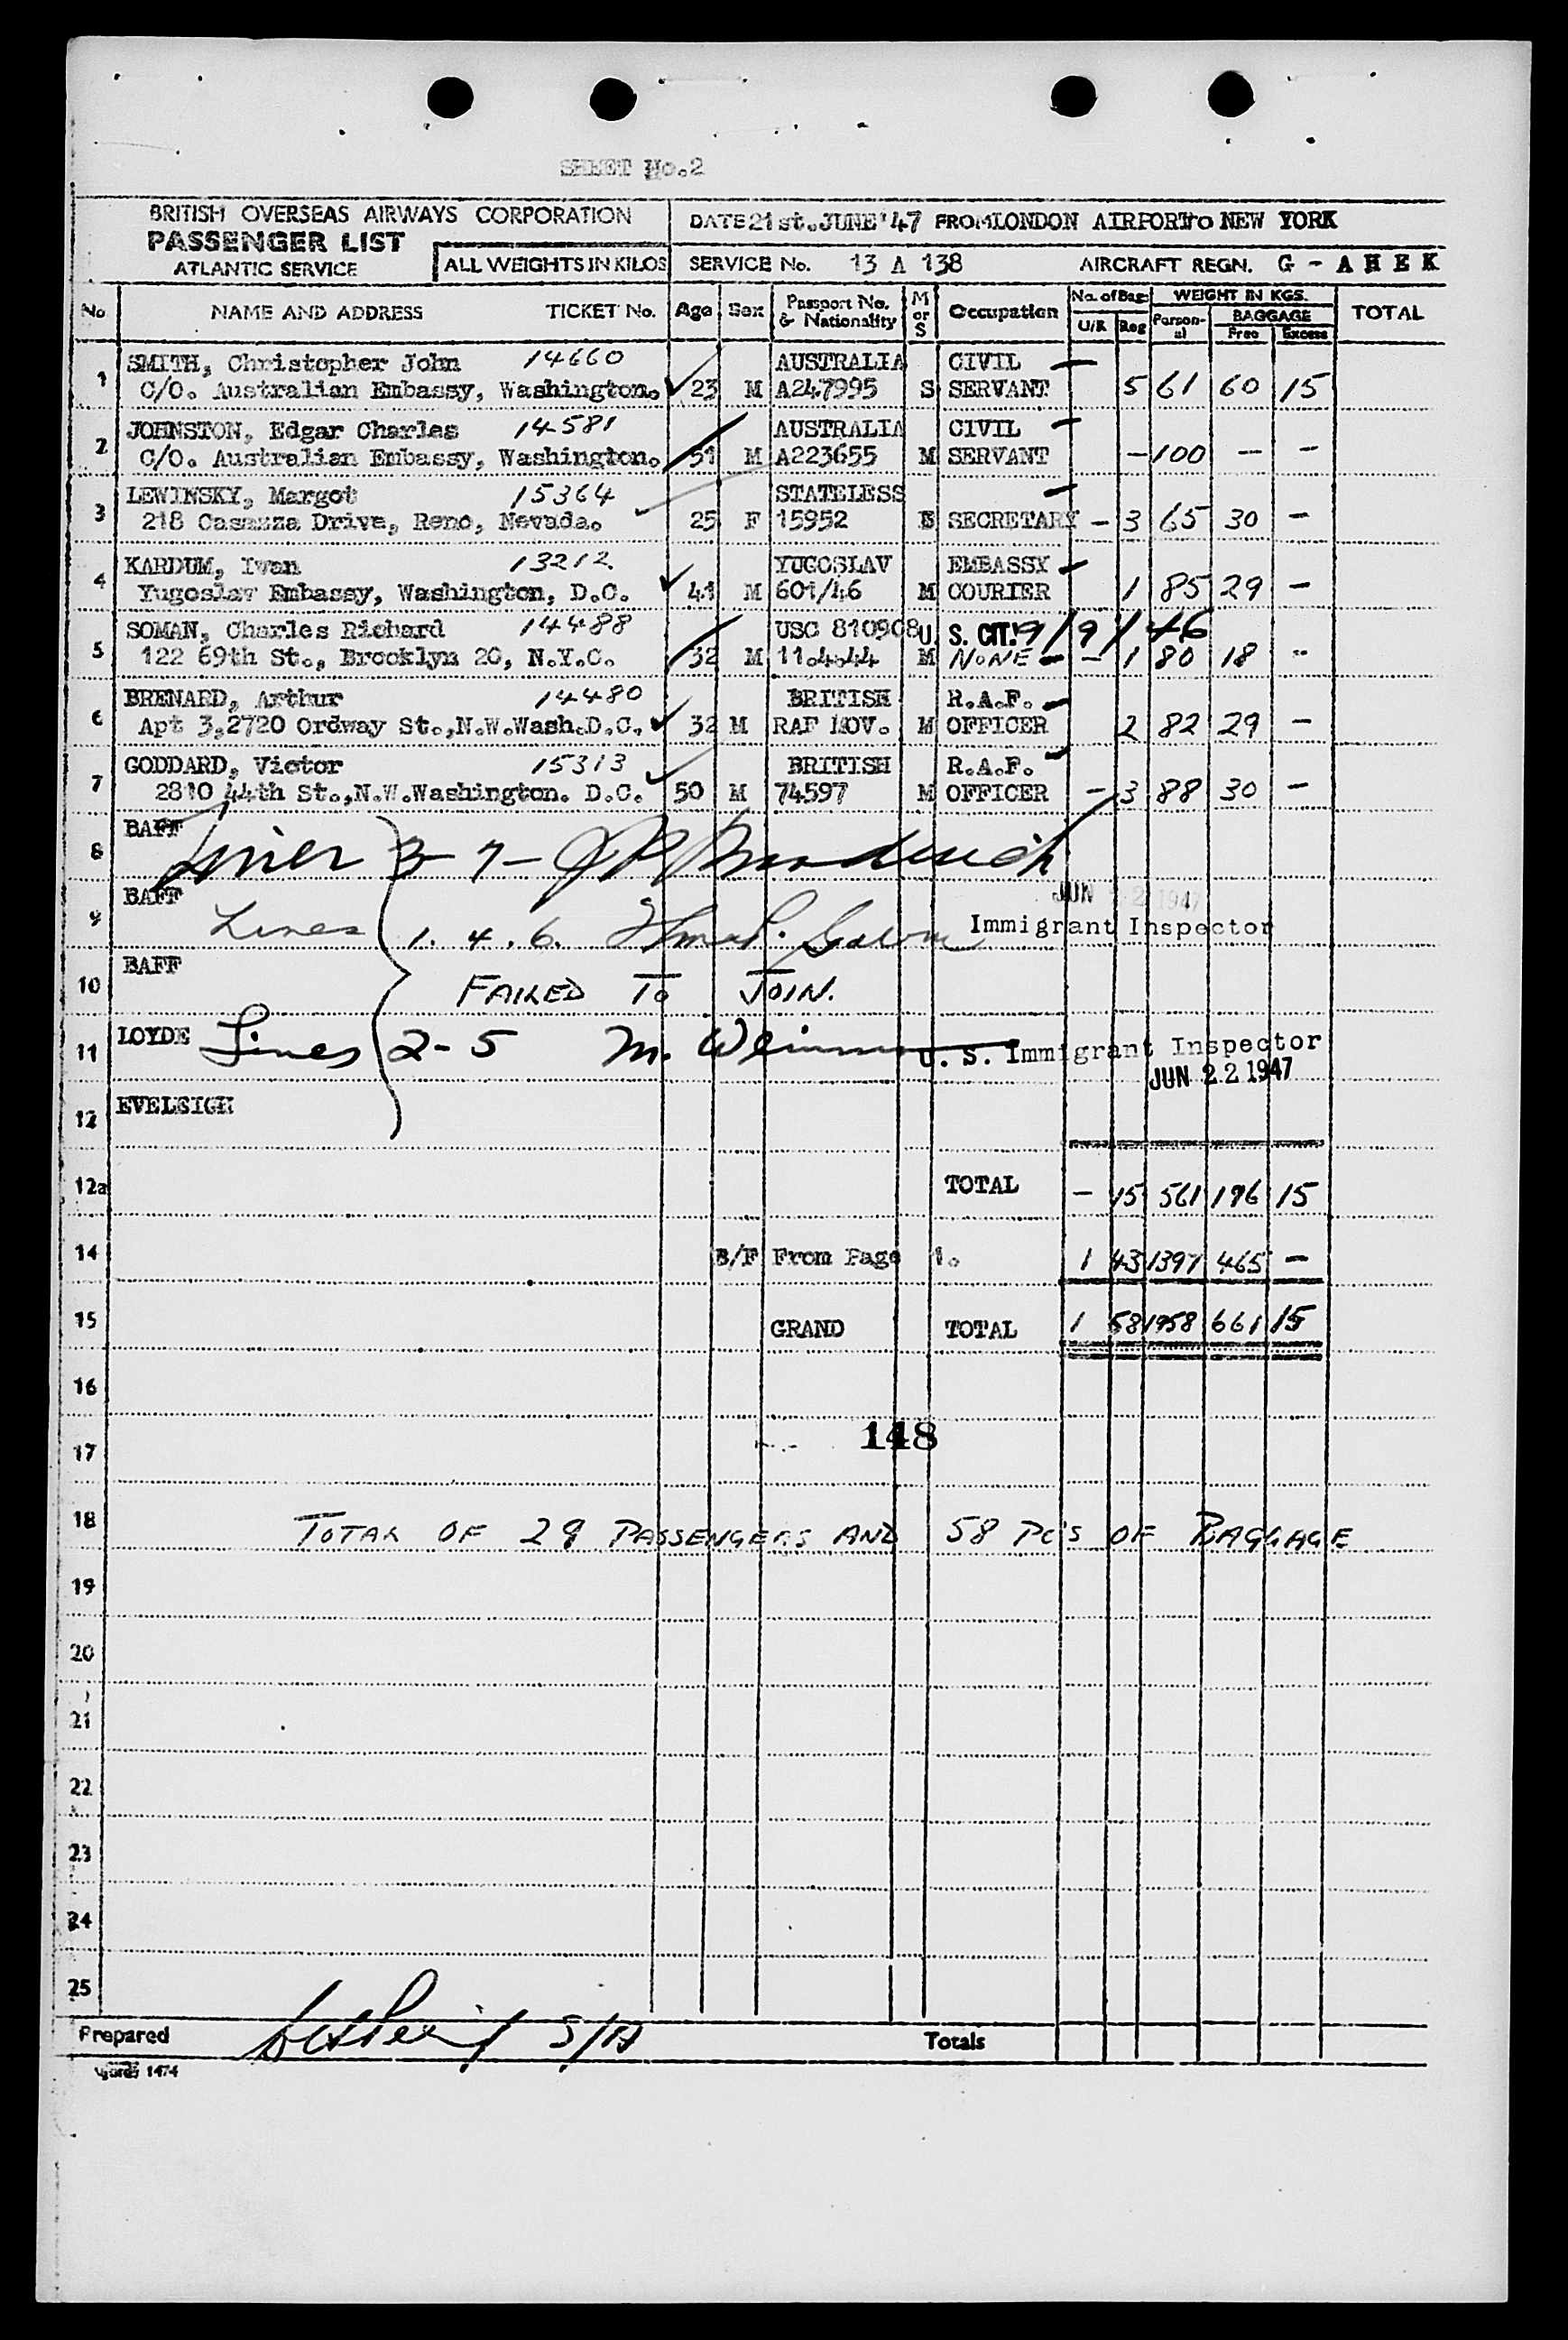 SHEET No.2
BRITISH OVERSEAS AIRWAYS CORPORATION
PASSENGER LIST
ATLANTIC SERVICE
ALL WEIGHTS IN KILOS
DATE 21st.JUNE'47 FROM LONDON AIRPORT TO NEW YORK
SERVICE No. 13 A 138 AIRCRAFT REGN. G - A H E K
No NAME AND ADDRESS TICKET No. Age Sex Passport No. & Nationality M or S Occupation No. of Bags U/R Reg WEIGHT IN KGS. Personal BAGGAGE Free Excess TOTAL
1 SMITH, Christopher John 14660 AUSTRALIA CIVIL —
C/O. Australian Embassy, Washington. 23 M A247995 S SERVANT 5 61 60 15
2 JOHNSTON, Edgar Charles 14581 AUSTRALIA CIVIL —
C/O. Australian Embassy, Washington. 51 M A223655 M SERVANT — 100 — —
3 LEWINSKY, Margot 15364 STATELESS —
218 Casazza Drive, Reno, Nevada. 25 F 15952 SECRETARY — 3 65 30 —
4 KARDUM, Ivan 13212 YUGOSLAV EMBASSY —
Yugoslav Embassy, Washington, D.C. 41 M 601/46 M COURIER 1 85 29 —
5 SOMAN, Charles Richard 14488 USC 810908 U. S. CIT. 9/9/46
122 69th St., Brooklyn 20, N.Y.C. 32 M 11.4.44 M NONE — — 1 80 18 --
6 BRENARD, Arthur 14480 BRITISH R.A.F. —
Apt 3,2720 Ordway St.,N.W.Wash.D.C. 32 M RAF MOV. M OFFICER 2 82 29 —
7 GODDARD, Victor 15313 BRITISH R.A.F.
2810 44th St.,N.W.Washington. D.C. 50 M 74597 M OFFICER — 3 88 30 —
8 BAFF
3-7-
JUN 22 1947
9 BAFF
Lines 1. 4. 6.
Immigrant Inspector
10 BAFF
FAILED TO JOIN.
11 LOYDE Lines 2-5 M.
U. S. Immigrant Inspector
JUN 22 1947
12 EVELEIGH
12a TOTAL — 15 561 196 15
14 B/F From Page 1. 1 43 1397 465 —
15 GRAND TOTAL 1 58 1958 661 15
16
148
17
18 TOTAL OF 29 PASSENGERS AND 58 PC'S OF BAGGAGE
19
20
21
22
23
24
25
Prepared S/A Totals
1474